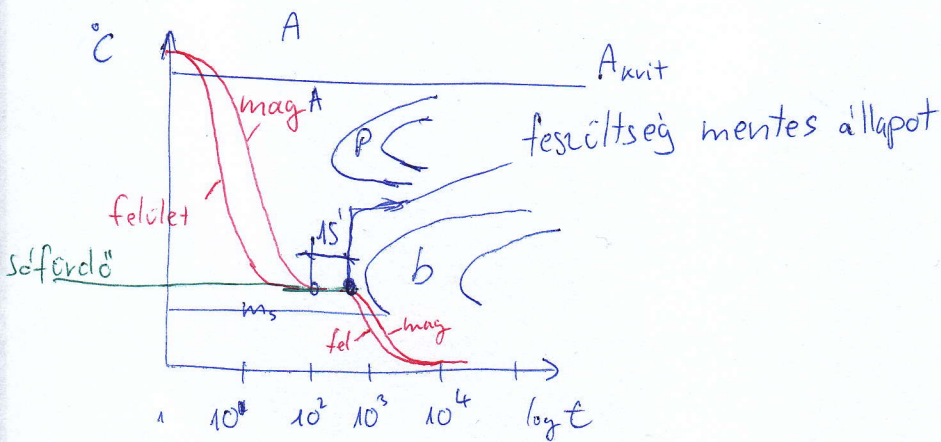 °C
A
Akrit
mag
A
P
feszültség mentes állapot
felület
15'
sófürdő
b
ms
fel
mag
1
10¹
10²
10³
10⁴
log t